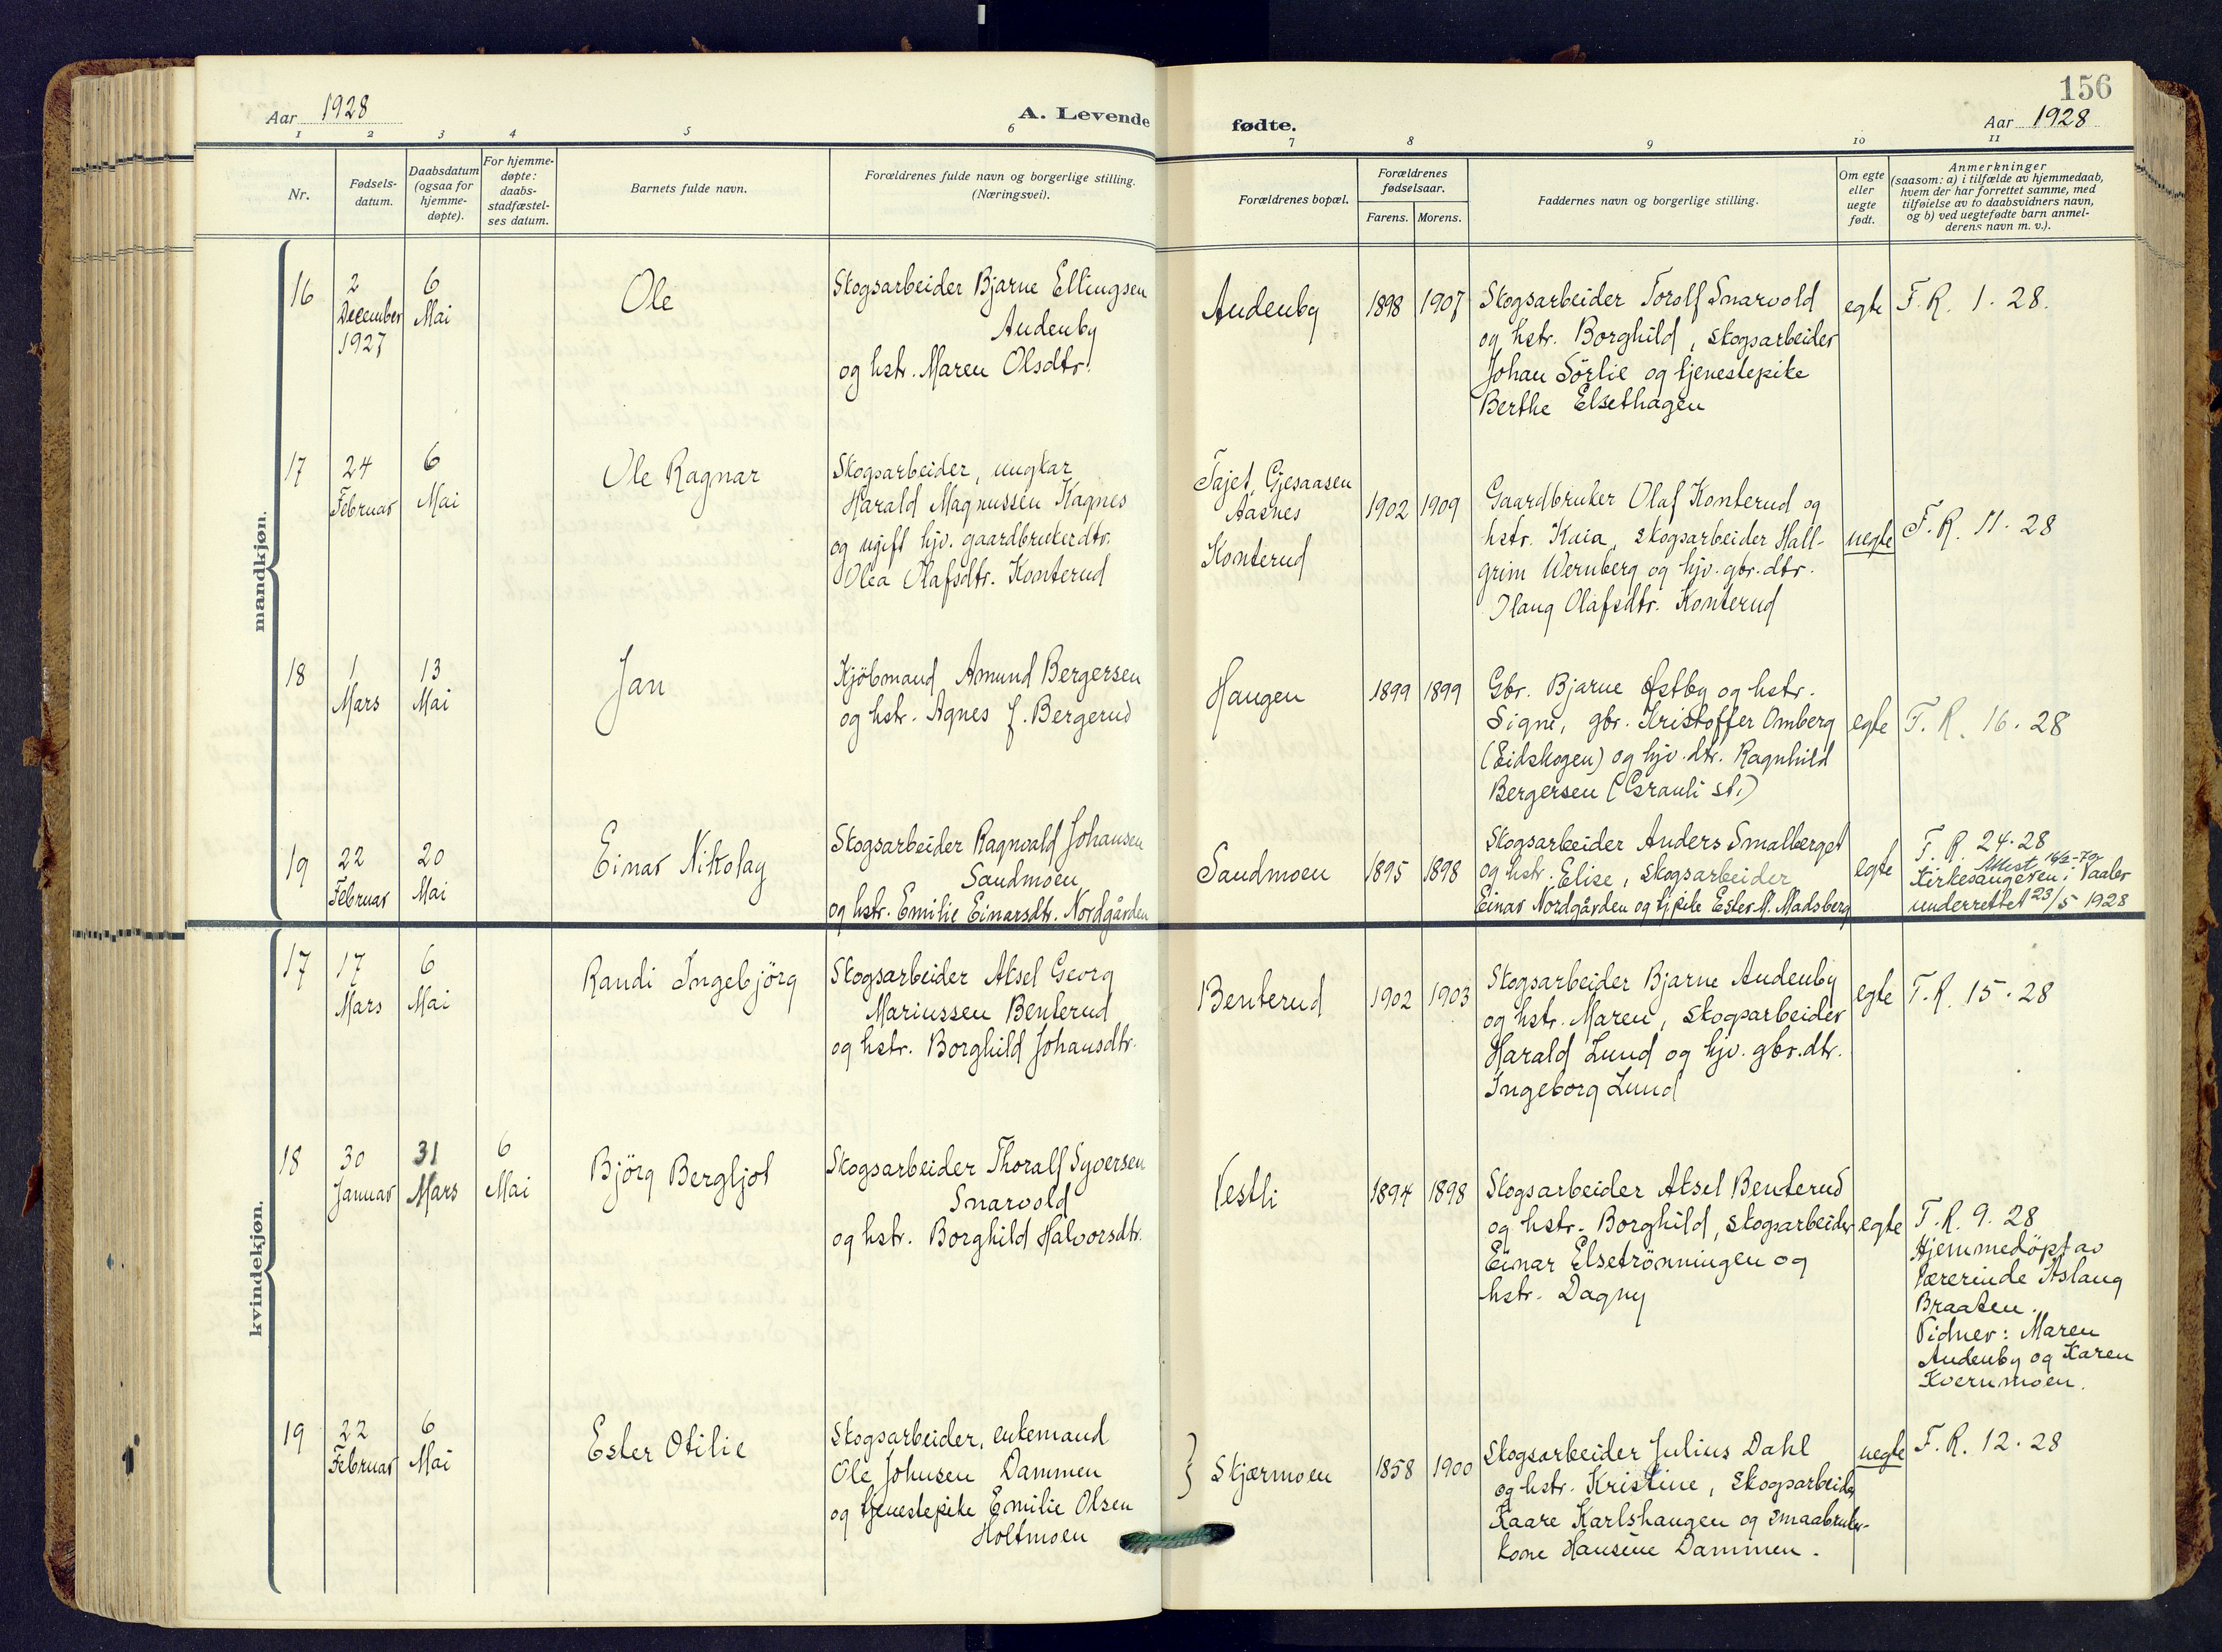 156
Aar 1928
A. Levende
fødte.
Aar 1928
1 2 3 4 5 6 7 8 9 10 11
Nr.
Fødsels-
datum.
Daabsdatum
(ogsaa for
hjemme-
døpte).
For hjemme-
døpte:
daabs-
stadfæstel-
ses datum.
Barnets fulde navn.
Forældrenes fulde navn og borgerlige stilling.
(Næringsvei).
Forældrenes bopæl.
Forældrenes
fødselsaar.
Farens. Morens.
Faddernes navn og borgerlige stilling.
Om egte
eller
uegte
født.
Anmerkninger
(saasom: a) i tilfælde av hjemmedaab,
hvem der har forrettet samme, med
tilføielse av to daabsvidners navn,
og b) ved uegtefødte barn anmel-
derens navn m. v.).
mandkjøn.
16
2
December
1927
6
Mai
Ole
Skogsarbeider Bjarne Ellingsen
Audenby
og hstr. Maren Olsdtr.
Audenby
1898
1907
Skogsarbeider Torolf Snarvold
og hstr. Borghild, skogsarbeider
Johan Sörlie og tjenestepike
Berthe Elsethagen
egte
F. R. 1. 28.
17
24
Februar
6
Mai
Ole Ragnar
Skogsarbeider, ungkar
Harald Magnussen Kagnes
og ugift hjv. gaardbrukerdtr.
Olea Olafsdtr. Konterud
Tajet, Gjesaasen
Aasnes
Konterud
1902
1909
Gaardbruker Olaf Konterud og
hstr. Kaia, skogsarbeider Hall-
grim Wernberg og hjv. gbr. dtr.
Olaug Olafsdtr. Konterud
uegte
F. R. 11. 28
18
1
Mars
13
Mai
Jan
Kjöbmand Amund Bergersen
og hstr. Agnes f. Bergerud
Haugen
1899
1899
Gbr. Bjarne Østby og hstr.
Signe, gbr. Kristoffer Omberg
(Eidskogen) og hjv. dtr. Ragnhild
Bergersen (Grauli st.)
egte
F. R. 16. 28
19
22
Februar
20
Mai
Einar Nikolay
Skogsarbeider Ragnvald Johansen
Sandmoen
og hstr. Emilie Einarsdtr. Nordgården
Sandmoen
1895
1898
Skogsarbeider Anders Smalberget
og hstr. Elise, skogsarbeider
Einar Nordgården og tjpike Ester M. Madsberg
egte
F. R. 24. 28
Attest
Kirkesangeren i Vaaler
underrettet 23/5 1928
kvindekjøn.
17
17
Mars
6
Mai
Randi Ingebjörg
Skogsarbeider Aksel Georg
Mariussen Benterud
og hstr. Borghild Johansdtr.
Benterud
1902
1903
Skogsarbeider Bjarne Audenby
og hstr. Maren, skogsarbeider
Harald Lund og hjv. gbr. dtr.
Ingeborg Lund
egte
F. R. 15. 28
18
30
Januar
31
Mars
6
Mai
Björg Bergljot
Skogsarbeider Thoralf Syversen
Snarvold
og hstr. Borghild Halvorsdtr.
Vestli
1894
1898
Skogsarbeider Aksel Benterud
og hstr. Borghild, skogsarbeider
Einar Elsetrønningen og
hstr. Dagny
egte
F. R. 9. 28
Hjemmedöpt av
lærerinde Aslaug
Braaten.
Vidner: Maren
Audenby og Karen
Kvernmoen.
19
22
Februar
6
Mai
Ester Otilie
Skogsarbeider, enkemand
Ole Johnsen Dammen
og tjenestepike Emilie Olsen
Holtmoen
Skjærmoen
1858
1900
Skogsarbeider Julius Dahl
og hstr. Kristine, skogsarbeider
Kaare Karlshaugen og smaabruker-
kone Hansine Dammen.
uegte
F. R. 12. 28